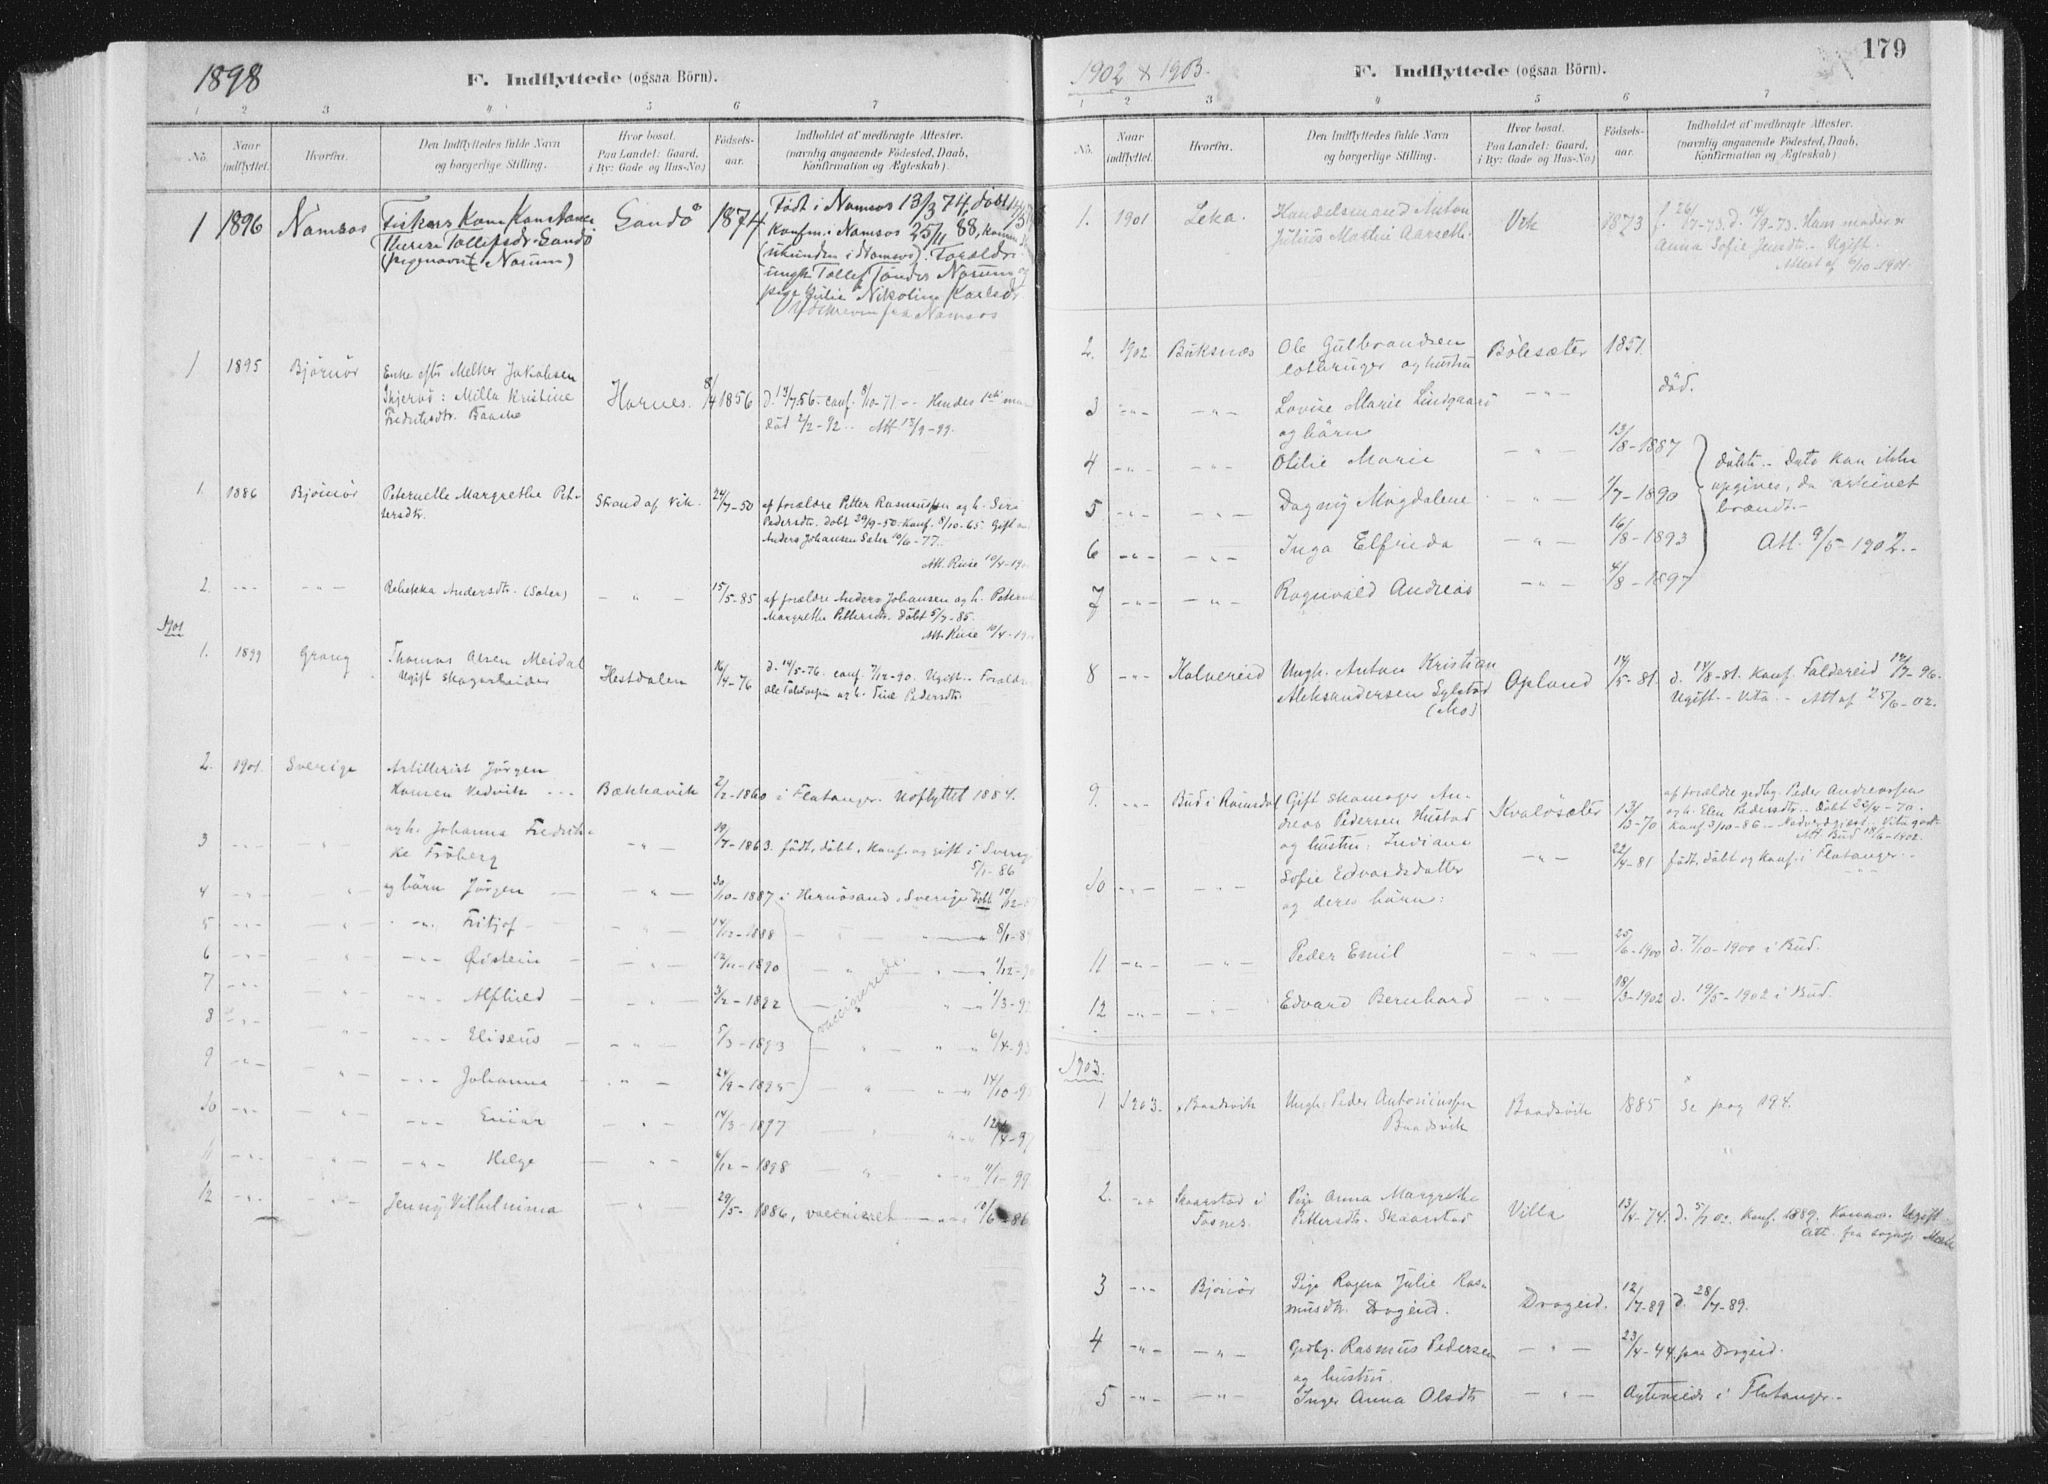 1898
F. Indflyttede (ogsaa Börn).
1 2 3 4 5 6 7
No. Naar indflyttet. Hvorfra. Den Indflyttedes fulde Navn og borgerlige Stilling. Hvor bosat. Paa Landet: Gaard, i By: Gade og Hus-No.) Födsels-aar. Indholdet af medbragte Attester. (navnlig angaaende Födested, Daab, Konfirmation og Ægteskab).
1 1896 Namsos Fiskers Kone Konstance Gandö 1874 Født i Namsos 13/3 74, døbt 14/5
Therese Tollefsdr. Gandö Konfm. i Namsos 25/11 88,
(pigenavnet Norum) i Namsos). Forældre:
ungk. Tollef Tønder Norum og
pige Julie Nikoline Karlsdr.
Udskreven fra Namsos
1 1895 Bjørnør Enke efter Melker Jakobsen
Skjervö: Milla Kristine Hornes. 8/4 1856 d. 13/7 56. conf. 8/10-71 -- Hendes
Fredriksdtr. Baache död 2/2-92 .. Att 15/9-99.
1. 1886 Bjørnør Peternelle Margrethe Pet- Strand af Vik. 24/7-50 af forældre Petter Rasmussen og h. Siri
tersdtr. Pedersdt. Döbt 29/9-50. Konf. 8/10-65. Gift m.
Anders Johansen Sæter 10/6-77.
Att. Ruse 10/4-190
2. --- -"- Rebekka Andersdtr. (Sæter) - " - 15/5-85 af forældre Anders Johansen og h. Petern
Margrethe Pettersdt. Döbt 5/7-85.
Att. Ruse 10/4-19
1901
1. 1899 Grong Thomas Olsen Meidal Hestdalen 16/4-76 d. 14/5-76. conf. 7/12-90. Ugift. - Foræld
Ugift skogarbeider Ole Tollevsen og h. Tine Pedersdt.
2. 1901. Sverige Artillerist Jörgen
Hansen Vedvik --- Bækkavik 2/2-1860 i Flatanger. Udflyttet 1884.
3 og h. Johanna Fredrik- -"- 19/7-1863. född, döbt, konf. og gift i Sverig
ke Fröberg 5/1-86
4 -"- - " og börn Jörgen - - " - 30/10-1887 i Hernösand i Sverige Döbt 10/12-8
5 -"- - " - -"- Fritjof - - " - 14/12-1888 - " - 8/1-89
6 -"- - " - -"- Øistein - - " - 12/11-1890 - " - 1/12-90
7 -"- - " - -"- Alfhild - - " - 3/2-1892 - " - 1/3-92
8 -"- - " - -"- Eliseus - " - 5/3-1893 - " - 6/4-93
vaccinerede.
9 -"- - " - -"- Johanna - " - 24/9-1895 - " - 14/10-9
10 -"- - " - -"- Einar - " - 14/3-1897 - " - 12/4-97
11 -"- - " - -"- Helge - " - 6/12-1898 - " - 11/1-99
12 -"- - " - Jenny Vilhelmina - " - 29/5-1886, vaccineret -"- 10/6-86
179
1902 & 1903.
F. Indflyttede (ogsaa Börn).
1 2 3 4 5 6 7
No. Naar indflyttet. Hvorfra. Den Indflyttedes fulde Navn og borgerlige Stilling. Hvor bosat. Paa Landet: Gaard, i By: Gade og Hus-No.) Födsels-aar. Indholdet af medbragte Attester. (navnlig angaaende Födested, Daab, Konfirmation og Ægteskab).
1. 1901 Leka. Handelsmand Anton Vik 1873 f. 26/7-73. d. 14/9-73. Hans moder er
Julius Martin Aarseth. Anna Sofie Jensdt. - Ugift.
Attest af 6/10-1901.
2. 1902 Buksnæs Ole Gulbrandsen Bölesæter 1851.
og hustru
3 -"- -"- Lovise Marie Lindgaard -"- död.
og börn
4 -"- -"- Otilie Marie - " - 13/8-1887 Döbte -. Dato kan ikke
5 -"- -"- Dagny Magdalene - " - 1/7-1890 opgives, da arkivet
brændt.-
6 -"- -"- Inga Elfrida - " - 16/8-1893 Att. 9/5-1902.-
7 -"- -"- Ragnvald Andreas -"- 4/8-1897
8 -"- Kolvereid Ungk. Anton Kristian Opland 14/5-81. d. 14/8-81. Konf. Foldereid 12/7-96.
Aleksandersen Sylstad Ugift. - Vita - Att af 25/6-02.
(Mo)
9. -"- Bud i Romsdal Gift skomager An- Kvalösæter 13/3-70 af forældre gedbg. Peder Andreassen
dreas Pedersen Hustad og h. Elen Pedersdt. - Döbt 22/4-70.
og hustru: Indiana Konf 3/10-86 - Nadverdgjæst - Vita god.-
Att. Bud 18/6-1902.
10 -"- - " - Sofie Edvardsdatter -"- 22/4-81 född, döbt og konf. i Flatanger.-
og deres börn:
11 -"- -"- Peder Emil -"- 25/6-1900 d. 7/10-1900 i Bud.
12 -"- -"- Edvard Bernhard -"- 18/3-1902 d. 19/5-1902 i Bud.
1903.
1 1903. Baadsvik Ungk. Peder Antoniussen Baadsvik 1885 Se pag 194.
Baadsvik
2. -"- Skaarstad i Pige Anna Margrethe Villa 13/4-74. d. 5/7 . Konf. 1889. Ugift.
Fosnes. Pettersdt. Skaarstad Att. fra sognep.
3 -"- Bjørnör Pige Ragna Julie Ras- Drageid. 12/7-89 d. 28/7-89.
musdt. Drageid.
4 -"- -"- Gedbg. Rasmus Pedersen -"- 23/4-44 paa Drageid.
og hustru
5 -"- -"- Inger Anna Olsdt -"- i Flatanger.-